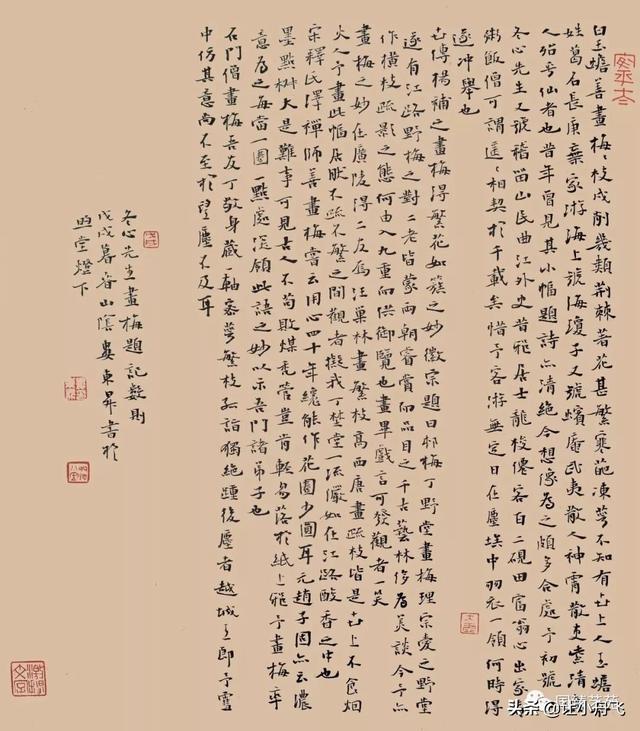 白玉蟾善畫梅梅枝戌削幾類荆棘著花甚繁寒葩凍萼不知有世上人玉蟾
姓葛名長庚棄家游海上號海瓊子又號蠙庵武夷散人神霄散吏紫清
人殆奇仙者也昔年曾見其小幅題詩亦清絕今想像為之頗多合處予初號
冬心先生又號稽留山民曲江外史昔耶居士龍梭僊客百二硯田富翁心出家庵
粥飯僧可謂遥遥相契於千載矣惜予客游無定日在塵埃中羽衣一領何時得
遂冲舉也
世傳楊補之畫梅得繁花如簇之妙徽宗題曰邨梅丁野堂畫梅理宗愛之野堂
遂有江路野梅之對二老皆蒙兩朝睿賞而品目之千古藝林侈為美談今予亦
作橫枝疏影之態何由入九重而供御覽也畫畢戲言可發觀者一笑
畫梅之妙在廣陵得二友焉汪巢林畫繁枝高西唐畫疏枝皆是世上不食烟
火人予畫此幅居然不疏不繁之間觀者擬我丁埜堂一流儼如在江路酸香之中也
宋釋氏澤禪師善畫梅嘗云用心四十年纔能作花圈少圓耳元趙子固亦云濃
墨點椒大是難事可見古人不苟敗煤禿管豈肯輕易落於紙上耶予畫梅率
意為之每當一圈一點處深領此語之妙以示吾門諸弟子也
石門僧畫梅吾友丁敬身藏一軸寒萼繁枝孤詣獨絕踵後塵者越城王郎予雪
中仿其意尚不至於望塵不及耳
冬心先生畫梅題記數則
戊戌暮春山陰婁東昇書於
燈下
头条